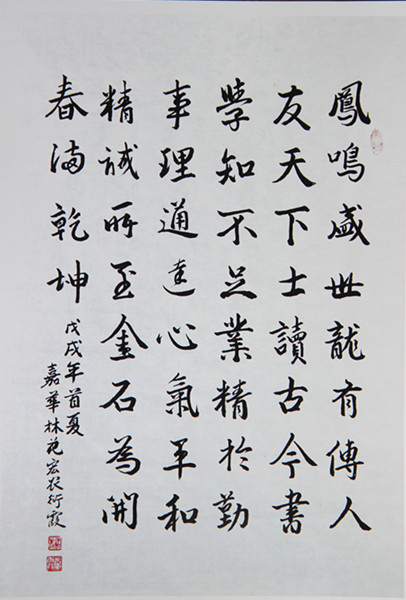 鳳鳴盛世龍有傳人
友天下士讀古今書
學知不足業精於勤
事理通達心氣平和
精誠所至金石為開
春滿乾坤
戊戌年首夏
嘉華林苑宏衍霞